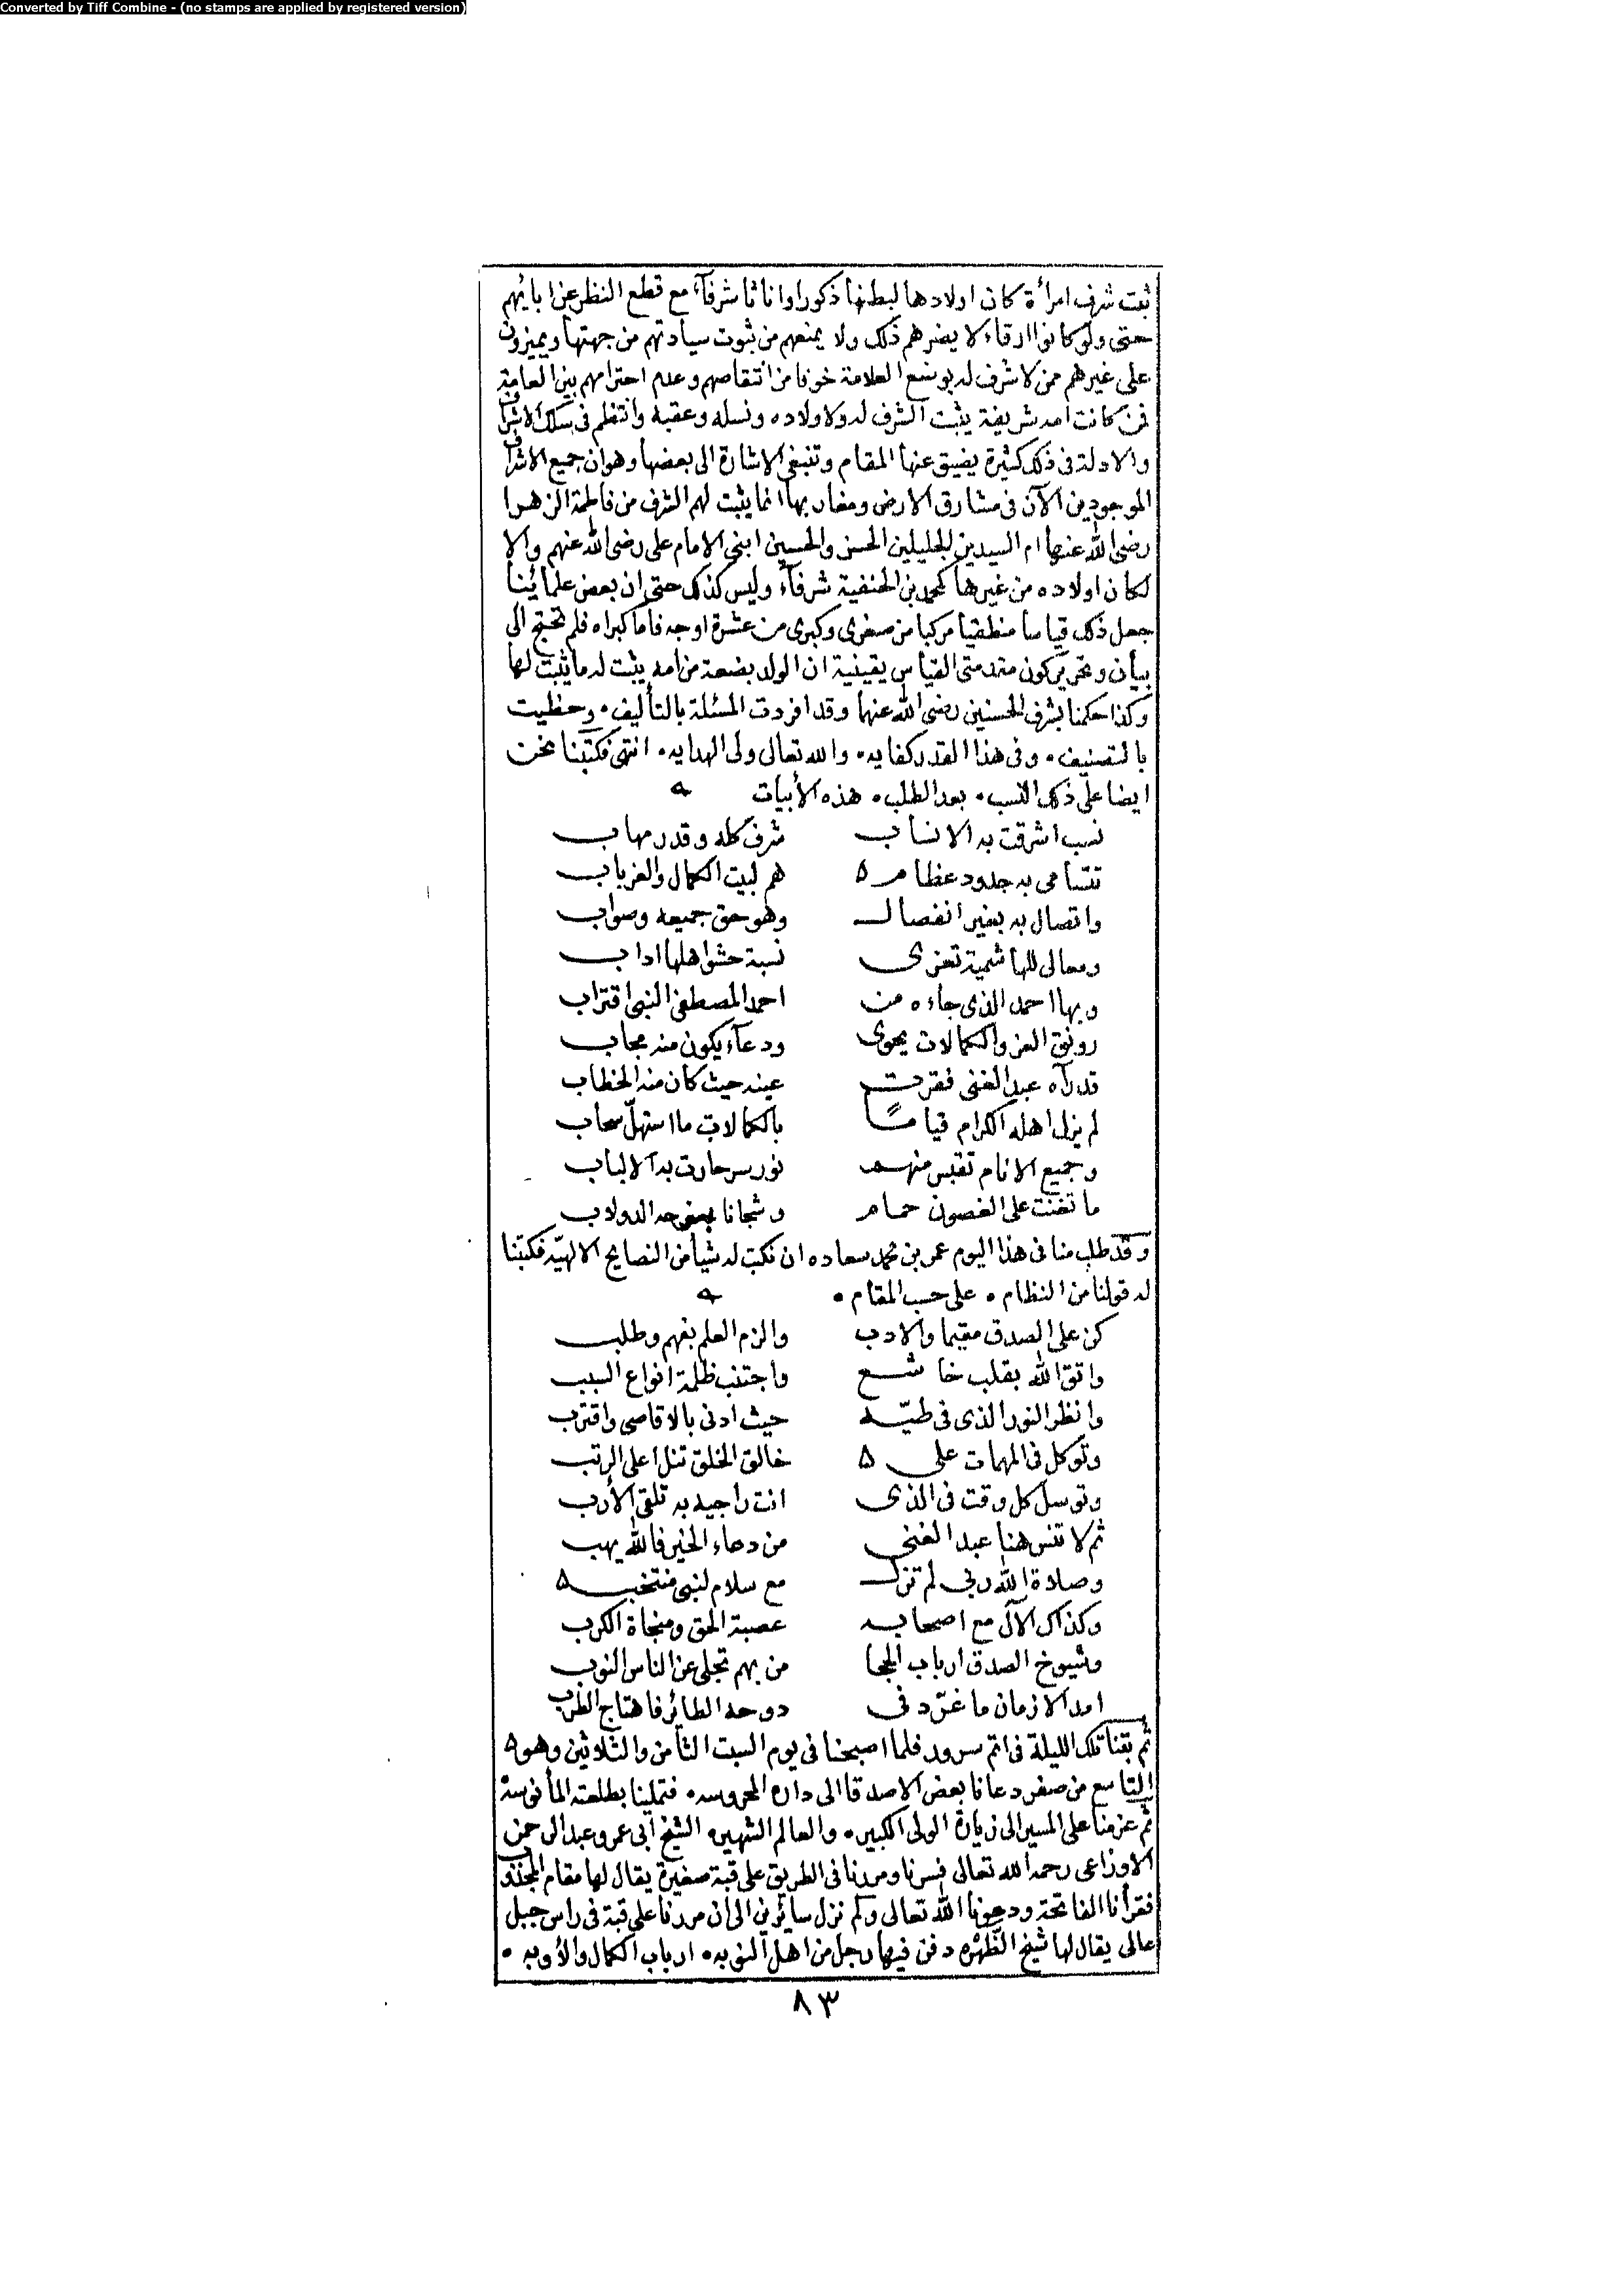 Converted by Tiff Combine - (no stamps are applied by registered version)
ثبت شرف امرأة كان اولادها لبطنها ذكورا واناثا شرفآء مع قطع النظر عن ابائهم
حتى ولو كانوا ارقاء لا يضرهم ذلك ولا يمنعهم من ثبوت سيادتهم من جهتها ويميزون
على غيرهم ممن لا شرف له بوضع العلامة خوفا من انتقاصهم وعدم احترامهم بين العامة
فمن كانت امه شريفة يثبت الشرف له ولاولاده ونسله وعقبه وانتظم فى سلك الاشراف
والادلة فى ذلك كثيرة يضيق عنها المقام وتنبغى الاشارة الى بعضها وهو ان جميع الاشراف
الموجودين الآن فى مشارق الارض ومغاربها انما يثبت لهم الشرف من فاطمة الزهرا
رضى الله عنها ام السيدين الجليلين الحسن والحسين ابنى الامام على رضى الله عنهم والا
لكان اولاده من غيرها كمحمد بن الحنفية شرفآء وليس كذلك حتى ان بعض علمائنا
جعل ذلك قياسا منطقيا مركبا من صغرى وكبرى من عشرة اوجه فاما كبراه فلم تحتج الى
بيان وتحرير كون مقدمتى القياس يقينية ان الولد بضعة من امه يثبت له ما يثبت لها
وكذا حكمنا بشرف الحسنين رضى الله عنهما وقد افردت المسئلة بالتأليف ۰ وحظيت
بالتصنيف ۰ وفى هذا القدر كفايه ۰ والله تعالى ولى الهدايه ۰ انتهى فكتبنا نحن
ايضا على ذلك النسب ۰ بعد الطلب ۰ هذه الأبيات
نسب اشرقت به الانساب شرف كله وقدر مهاب
تتسامى به جدود عظام هم لبيت الكمال والعز باب
واتصال به بغير انفصال وهو حق جميعه وصواب
ومعالى للهاشمية تعزى نسبة حشو اهلها اداب
وبها احمد الذى جاءه من احمد المصطفى النبى اقتراب
رونق العز والكمالات يحوى ودعآء يكون منه مجاب
قد رآه عبد الغنى فقرت عينه حيث كان منه الخطاب
لم يزل اهله الكرام قياما بالكمالات ما استهلّ سحاب
وجميع الانام تقبس منهم نور سر حارت به الالباب
ما تغنت على الغصون حمام وشجانا الدولاب
وقد طلب منا فى هذا اليوم عمر بن محمد سعاده ان نكتب له شيأ من النصايح الالهيّه فكتبنا
له قولنا من النظام ۰ على حسب المقام ۰
كن على الصدق مقيما والادب والزم العلم بفهم وطلب
واتق الله بقلب خاشع واجتنب ظلمة انواع السبب
وانظر النور الذى فى طيّه حيث ادنى بالاقاصى واقترب
وتوكل فى المهمات على خالق الخلق تنل اعلى الرتب
وتوسل كل وقت فى الذى انت راجيه به تلقى الأرب
ثم لا تنس هنا عبد الغنى من دعاء الخير فالله يهب
وصلاة الله ربى لم تزل مع سلام لنبى منتخب
وكذاك الآل مع اصحابه عصبة الحق ومنجاة الكرب
وشيوخ الصدق ارباب الحجا من بهم تجلى عن الناس النوب
امد الازمان ما غرّد فى دوحه الطائر فاهتاج الطرب
ثم بتنا تلك الليلة فى اتم سرور فلما اصبحنا فى يوم السبت الثامن والثلاثين وهو
التاسع من صفر دعانا بعض الاصدقا الى داره المحروسه ۰ فتملينا بطلعته المأنوسة
ثم عزمنا على المسير الى زيارة الولى الكبير ۰ والعالم الشهير ۰ الشيخ ابى عمرو عبد الرحمن
الاوزاعى رحمه الله تعالى فسرنا ومررنا فى الطريق على قبة صغيرة يقال لها مقام
فقرأنا الفاتحة ودعونا الله تعالى ولم نزل سائرين الى ان مررنا على قبة فى راس جبل
عالى يقال لها شيخ الظهره دفن فيها رجل من اهل النوبه ۰ ارباب الكمال والأوبه ۰
٨٣